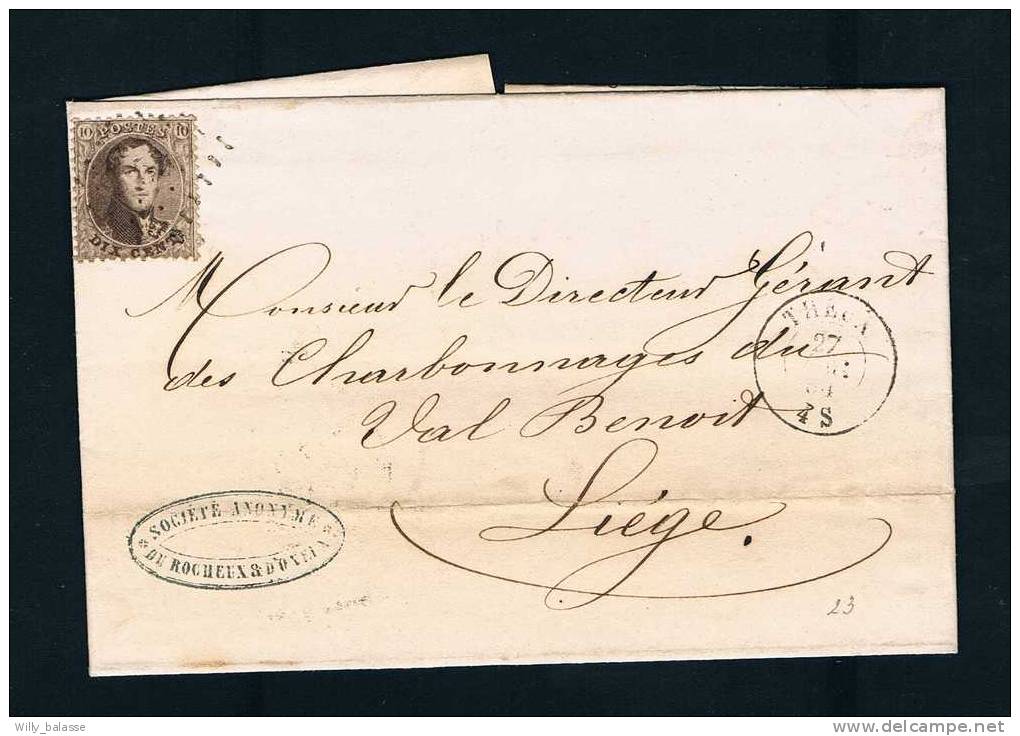 10 POSTES 10
DIX CENT
Monsieur le Directeur Gérant
des Charbonnages du
Val Benoit
Liége.
THEUX
27
4 S
SOCIÉTÉ ANONYME
DE ROCHEUX & D'ONEUX
23
Willy_balasse
www.delcampe.net